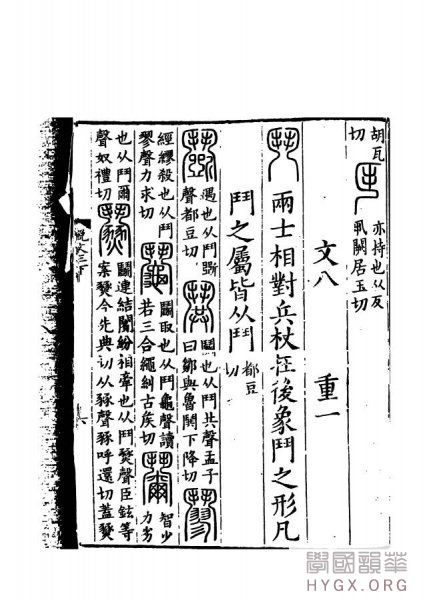 胡瓦切 亦持也从反丮闕居玉切
文八 重一
鬥 兩士相對兵杖在後象鬥之形凡
鬥之屬皆从鬥 都豆切
鬭 遇也从鬥斲聲都豆切 鬨 鬭也从鬥共聲孟子曰鄒與魯鬨下降切
經繆殺也从鬥翏聲力求切 鬮 鬭取也从鬥龜聲讀若三合繩糾古矦切 智少力劣
也从鬥爾聲奴禮切 鬭連結鬭紛相牽也从鬥燹聲臣鉉等案燹今先典切从豩聲豩呼還切蓋燹
說文三下
六
學國韻華
HYGX.ORG